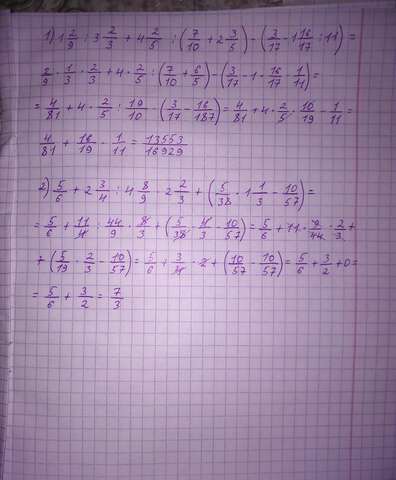 1) 1 2/9 : 3 2/3 + 4 2/5 : (7/10 + 2 3/5) - (3/17 - 1 16/17 : 11) =
2/9 · 1/3 · 2/3 + 4 · 2/5 : (7/10 + 6/5) - (3/17 - 1 · 16/17 · 1/11) =
= 4/81 + 4 · 2/5 : 19/10 - (3/17 - 16/187) = 4/81 + 4 · 2/5 · 10/19 - 1/11 =
4/81 + 16/19 - 1/11 = 13553/16929
2) 5/6 + 2 3/4 : 4 8/9 · 2 2/3 + (5/38 · 1 1/3 - 10/57) =
= 5/6 + 11/4 : 44/9 · 8/3 + (5/38 · 4/3 - 10/57) = 5/6 + 11 · 9/44 · 2/3 +
+ (5/19 · 2/3 - 10/57) = 5/6 + 3/4 · 2 + (10/57 - 10/57) = 5/6 + 3/2 + 0 =
= 5/6 + 3/2 = 7/3